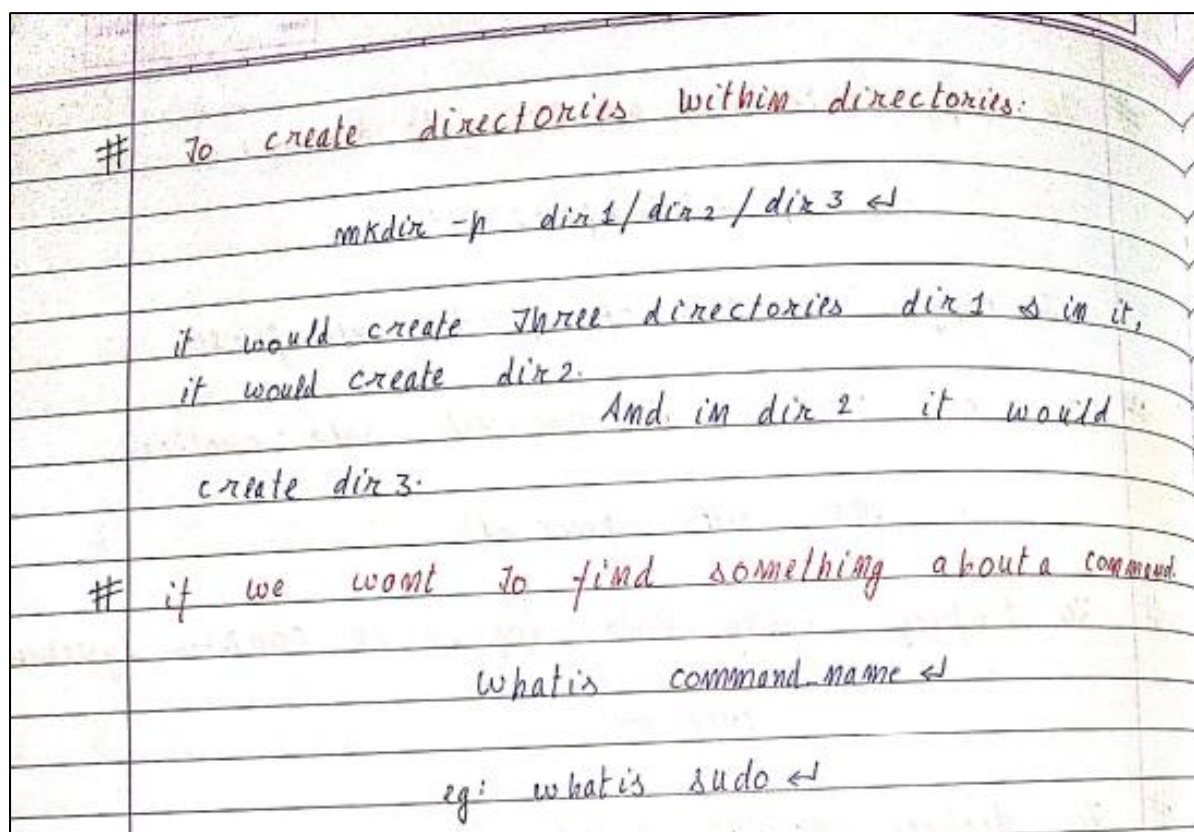 # To create directories within directories:
mkdir -p dir1/dir2/dir3 ↵
it would create Three directories dir1 & in it,
it would create dir2.
And in dir2 it would
create dir3.
# if we want To find something about a command.
whatis command_name ↵
eg: whatis sudo ↵